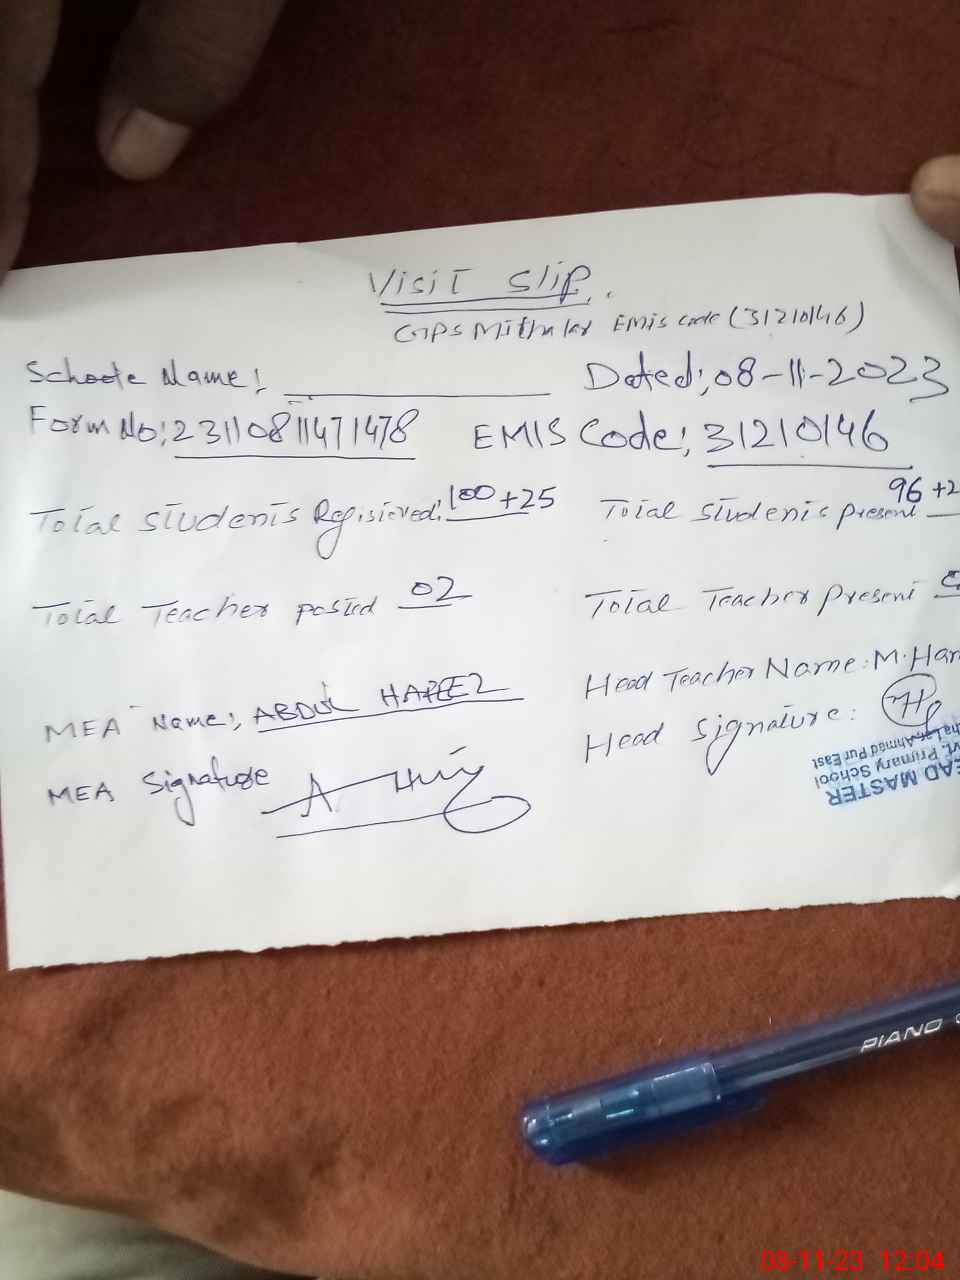 Visit Slip.
GPS Mithalar Emis code (31210146)
Schoole Name: Dated: 08-11-2023
Form No: 23110811471478 EMIS Code: 31210146
Total students Registered: 100+25 Total students present 96+2
Total Teacher posted 02 Total Teacher present
Head Teacher Name: M.Han
MEA Name: ABDUL HAFEEZ
Head Signature:
MEA Signature
EAD MASTER
vt. Primary School
Ahmad Pur East
PIANO
08-11-23 12:04